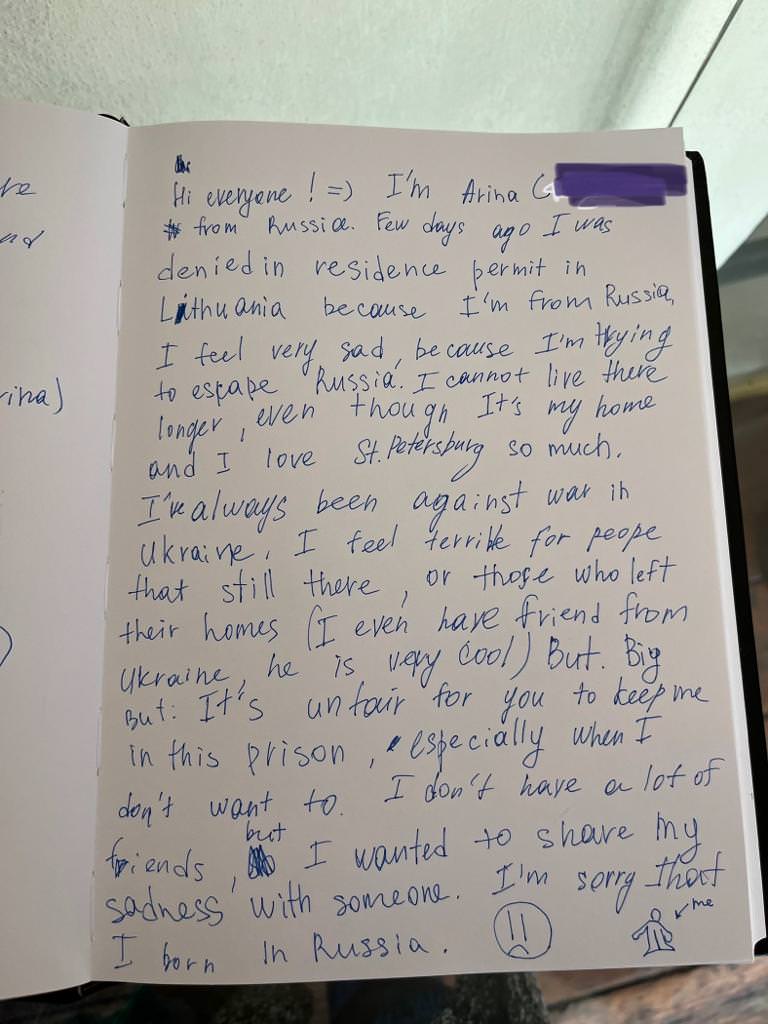 re
nd
rina)
Hi everyone ! =) I'm Arina G
from Russia. Few days ago I was
denied in residence permit in
Lithuania because I'm from Russia,
I feel very sad, because I'm trying
to escape Russia. I cannot live there
longer, even though It's my home
and I love St. Petersburg so much.
I've always been against war in
Ukraine. I feel terrible for peope
that still there, or those who left
their homes (I even have friend from
Ukraine, he is very cool) But. Big
But: It's unfair for you to keep me
in this prison, especially when I
don't want to. I don't have a lot of
friends, but I wanted to share my
sadness with someone. I'm sorry that
I born in Russia.
me